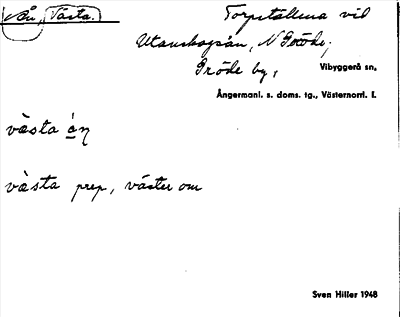 Ån, Västa.
Torpställena vid
Utanskogsån, N Gröde,
Gröde by, Vibyggerå sn,
Ångermanl. s. doms. tg., Västernorrl. l.
västa
västa prep, väster om
Sven Hiller 1948